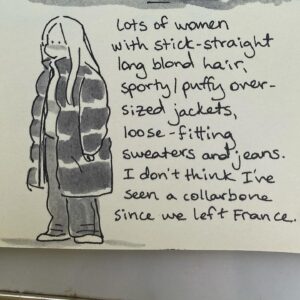 Lots of women
with stick-straight
long blond hair,
sporty/puffy over-
sized jackets,
loose-fitting
sweaters and jeans.
I don't think I've
seen a collarbone
since we left France.